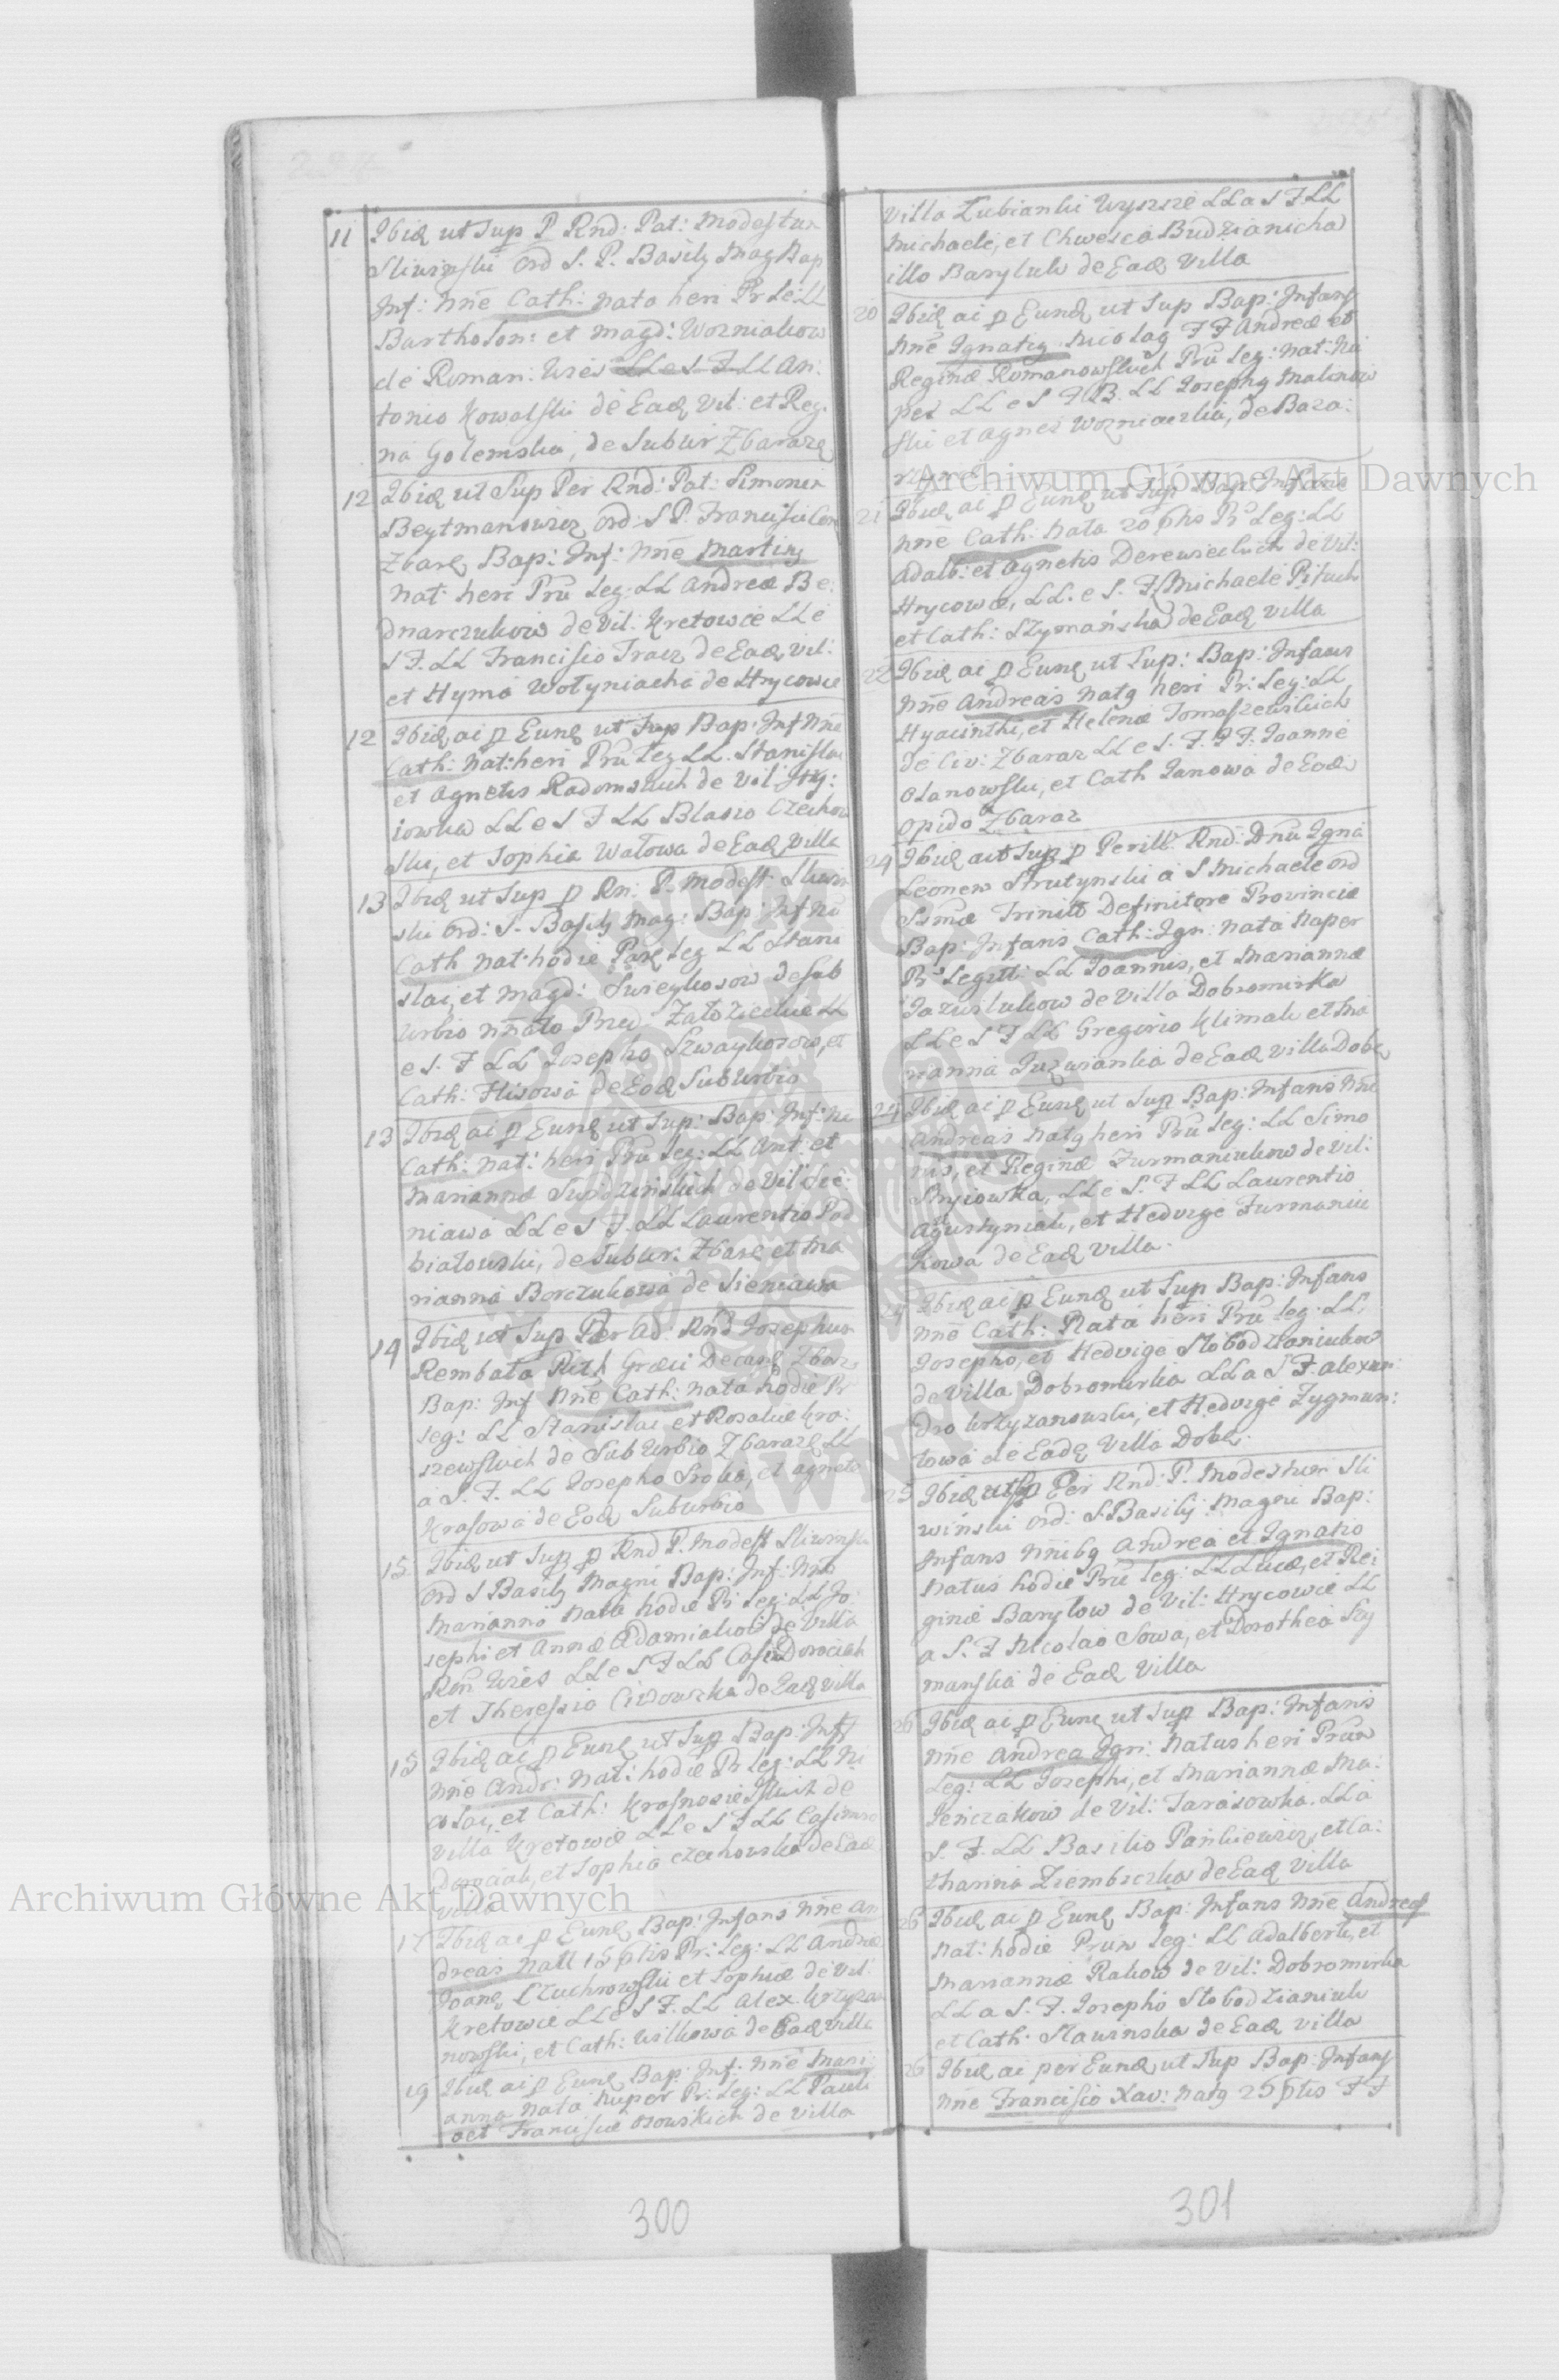 11 Ibid ut Sup P Rnd: Pat: Modestum
Sliwinski Ord S. P. Basily Mag Bap
Inf: Nne Cath: nata heri Pr Le: LL
Bartholom: et Magd: Wozniakow
de Roman: Wies LL e S F LL An:
tonio Kowalski de Ead Vil: et Reg:
na Golemska, de Subur Zbaraz
12 Ibid ut Sup Per Rnd: Pat: Simonem
Beytmanowicz Ord: S P. Francisci Con
Zbar Bap: Inf: Nne Martin
Nat: heri Pru Leg: LL Andreæ Be:
dnarczukow de Vil: Kretowce LL e
S F. LL Francisco Tracz de Ead Vil:
et Hyma Wołyniacha de Hrycowce
12 Ibid ai p Eund ut Sup Bap: Inf Nne
Cath: Nat: heri Pru Leg LL. Stanislai
et Agnetis Radomskich de Vil
iowka LL e S F LL Blasio Czechow
ski, et Sophia Watowa de Ead Villa
13 Ibid ut Sup p Rn: P. Modest: Sliwin
ski Ord: S. Basily Mag: Bap: Inf Ne
Cath Nat: hodie Par Leg LL Stani
slai, et Magd: de Sub
urbio Załozieckie LL
e S. F LL Josepho Szwaykosow, et
Cath: Flisowa de Eod Suburbio
13 Ibid ai p Eund ut Sup: Bap: Inf: Ne
Cath: Nat: heri Pru Leg: LL Ant: et
Mariannæ de Vil Sie:
niawa LL e S F. LL Laurentio Pod
białowski, de Subur: Zbar et Ma
rianna Borczukowa de Sieniawa
14 Ibid ut Sup Per Ad: Rnd Josephum
Rembata Rith Græci Decan Zbar
Bap: Inf Nne Cath: nata hodie Pr
Leg: LL Stanislai et Rosaliæ Kra:
szewskich de Suburbio Zbaraz LL
a S. F. LL Josepho Sroka, et Agneta
Krasowa de Eod Suburbio
15 Ibid ut Sup p Rnd P. Modest Sliwinski
Ord S Basily Magni Bap: Inf: Nne
Marianna Nata hodie Pr Leg: LL Jo
sephi et Annæ Adamiakow de Villa
Rom Wies LL e S F LL Casim Dorociak
et Theressia de Ead Villa
15 Ibid ai p Eund ut Sup Bap: Inf
Nne Andr: Nat: hodie Pr Leg: LL Ni
colai, et Cath: Krasnosielskich de
Villa Kretowce LL e S F LL Casimiro
Dorociak, et Sophia Czechowska de Ead
Villa
17 Ibid ai p Eund Bap: Infans Nne An
dreas Natt 15 Pr: Leg: LL Andreæ
Joan et Sophiæ de Vil:
Kretowce LL e S F. LL Alex Krzyza
nowski, et Cath: Wilkowa de Ead Villa
19 Ibid ai p Eund Bap: Inf: Nne Mari:
anna Nata Nuper Pr: Leg: LL Pauli
et Franciscæ Osowskich de Villa
300
Villa Lubianki Wyszsze LL a S F LL
Michaele, et Chwesca Budzianicha
illo Baryluk de Ead Villa
20 Ibid ai p Eund ut Sup Bap: Infans
Nne Ignatig Nicolag F F Andreæ et
Reginæ Romanowskich Pru Leg: Nat: Nu
per LL e S F B. LL Josepho Malinow
ski et Agnes Wozniaczka, de Baza:
21 Ibid ai p Eund ut Sup Bap: Infans
Nne Cath: Nata 20 Pr Leg: LL
Adalb: et Agnetis Derewieckich de Vil:
Hrycowce, LL. e S. F. Michaele Pituch
et Cath: Szymanska de Ead Villa
22 Ibid ai p Eund ut Sup: Bap: Infans
Nne Andreas Natg heri Pr: Leg: LL
Hyacinthi, et Helenæ Tomaszewskich
de Civ: Zbaraz LL e S. F. F F. Joanne
Olanowski, et Cath Janowa de Eod
Opido Zbaraz
24 Ibid ut Sup p Perill: Rnd: Dnu Igna
Leonem Strutynski a S Michaele ord
Ssmæ Trinitt Definitore Provinciæ
Bap: Infans Cath: Ign: Nata Nuper
Pr Legitt: LL Joannis, et Mariannæ
Jazuslukow de Villa Dobromirka
LL e S F LL Gregorio Klimak et Ma
rianna de Ead Villa Dobr
24 Ibid ai p Eund ut Sup Bap: Infans Nne
Andreas Natg heri Pru Leg: LL Simo
nis, et Reginæ Furmaniukow de Vil:
Stryiowka, LL e S. F LL Laurentio
Agustyniak, et Hedvige Furmaniu
kowa de Ead Villa.
24 Ibid ai p Eund ut Sup Bap: Infans
Nne Cath: Nata heri Pru Leg: LL
Josepho, et Hedvige Słobodzianiukow
de Villa Dobromirka LL a S F. Alexan:
dro Krzyzanowski, et Hedvige Zygmun:
towa de Ead Villa Dobr.
25 Ibid ut Sup Per Rnd: P. Modestum Sli
winski Ord: S. Basily Magni Bap:
Infans Nnibg Andrea et Ignatio
Natus hodie Pru Leg: LL Lucæ, et Re
ginæ Barylow de Vil: Hrycowce LL
a S. F Nicolao Sowa, et Dorothea Szy
manska de Ead Villa
26 Ibid ai p Eund ut Sup Bap: Infans
Nne Andrea Ign: Natus heri Prux
Leg: LL Josephi, et Mariannæ Ma:
de Vil: Tarasowka. LL a
S. F. LL Basilio Pankiewicz, et Ca:
tharina Ziembiczka de Ead Villa
26 Ibid ai p Eund Bap: Infans Nne Andreas
Nat: hodie Prux Leg: LL Adalberti, et
Mariannæ Rakow de Vil: Dobromirka
LL a S. F. Josepho Słobodzianiuk
et Cath: Sławinska de Ead Villa
26 Ibid ai per Eund ut Sup Bap: Infans
Nne Francisco Xav: Natg 25 F F
301
Archiwum Główne Akt Dawnych
Archiwum Główne Akt Dawnych